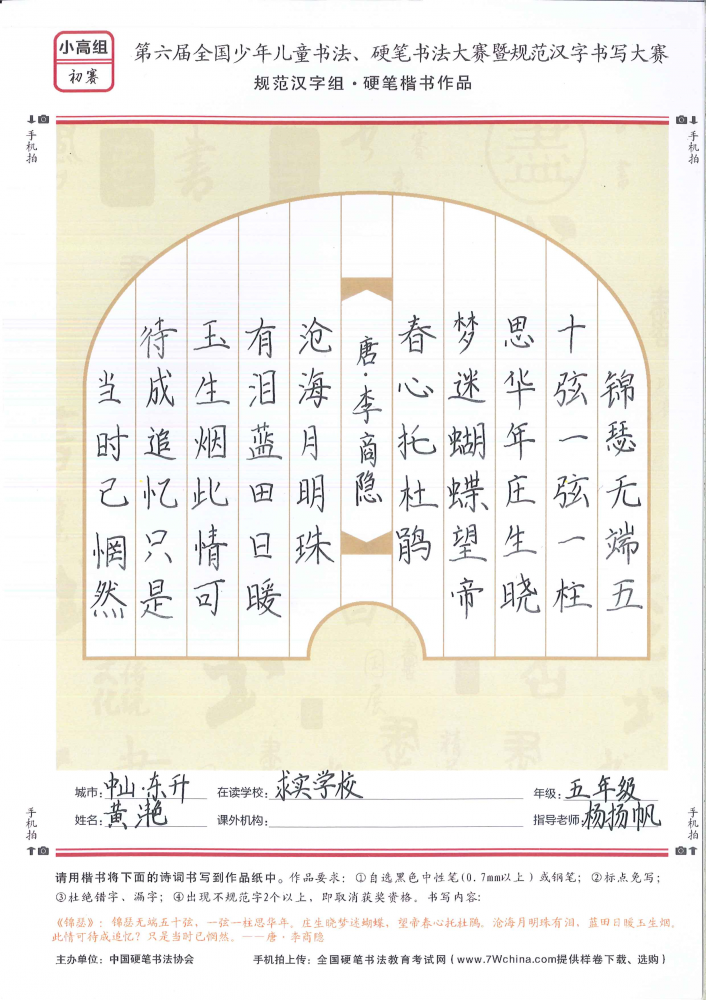 小高组
初赛
第六届全国少年儿童书法、硬笔书法大赛暨规范汉字书写大赛
规范汉字组·硬笔楷书作品
手机拍
手机拍
锦瑟无端五
十弦一弦一柱
思华年庄生晓
梦迷蝴蝶望帝
春心托杜鹃
唐·李商隐
沧海月明珠
有泪蓝田日暖
玉生烟此情可
待成追忆只是
当时已惘然
城市：中山·东升 在读学校：求实学校 年级：五年级
姓名：黄滟 课外机构： 指导老师：杨扬帆
手机拍
手机拍
请用楷书将下面的诗词书写到作品纸中。作品要求：①自选黑色中性笔(0.7mm以上)或钢笔；②标点免写；
③杜绝错字、漏字；④出现不规范字2个以上，即取消获奖资格。书写内容：
《锦瑟》：锦瑟无端五十弦，一弦一柱思华年。庄生晓梦迷蝴蝶，望帝春心托杜鹃。沧海月明珠有泪，蓝田日暖玉生烟。
此情可待成追忆？只是当时已惘然。——唐·李商隐
主办单位：中国硬笔书法协会 手机拍上传：全国硬笔书法教育考试网（www.7Wchina.com提供样卷下载、选购）